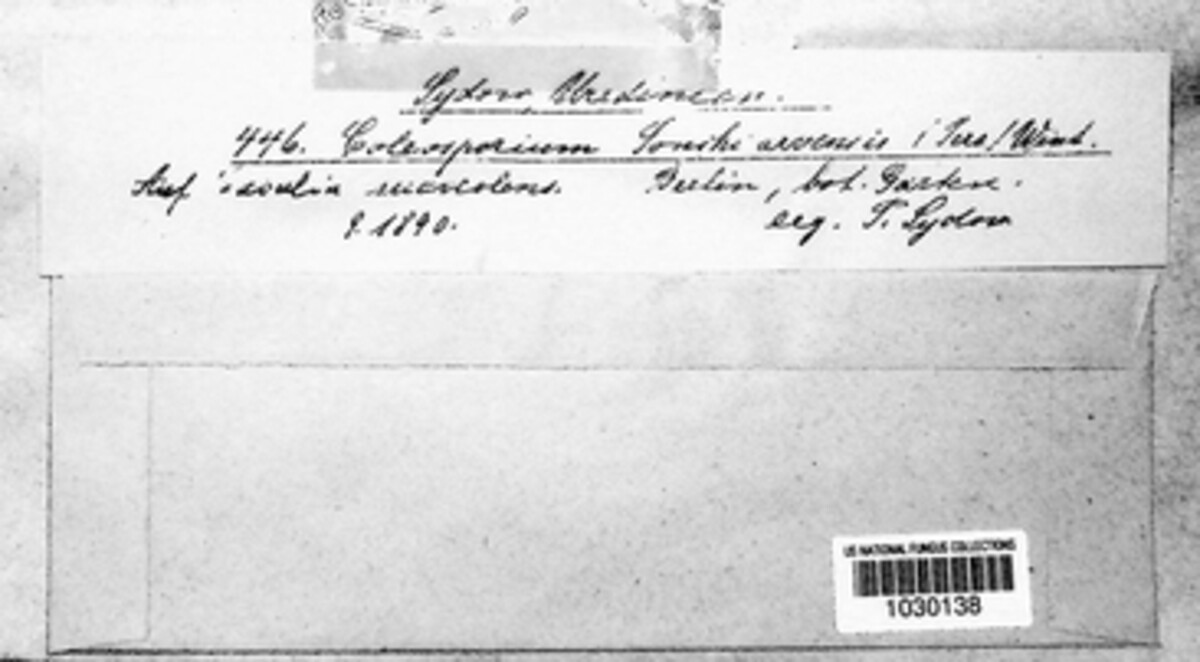 Sydow, Uredineen.
446. Coleosporium Sonchi arvensis (Pers/ Wint.
Auf Cacalia suaveolens. Berlin, bot. Garten.
9. 1890. leg. P. Sydow
US NATIONAL FUNGUS COLLECTIONS
1030138